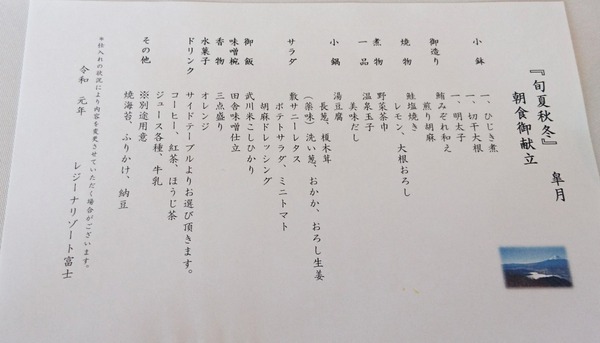 『旬夏秋冬』 皐月
朝食御献立
小鉢 一、ひじき煮
一、切干大根
一、明太子
御造り 鮪みぞれ和え
煎り胡麻
焼物 鮭塩焼き
レモン、大根おろし
煮物 野菜茶巾
一品 温泉玉子
美味だし
小鍋 湯豆腐
長葱、榎木茸
（薬味）洗い葱、おかか、おろし生姜
サラダ 敷サニーレタス
ポテトサラダ、ミニトマト
胡麻ドレッシング
御飯 武川米こしひかり
味噌椀 田舎味噌仕立
香物 三点盛り
水菓子 オレンジ
ドリンク サイドテーブルよりお選び頂きます。
コーヒー、紅茶、ほうじ茶
ジュース各種、牛乳
その他 ※別途用意
焼海苔、ふりかけ、納豆
※仕入れの状況により内容を変更させていただく場合がございます。
令和 元年 レジーナリゾート富士